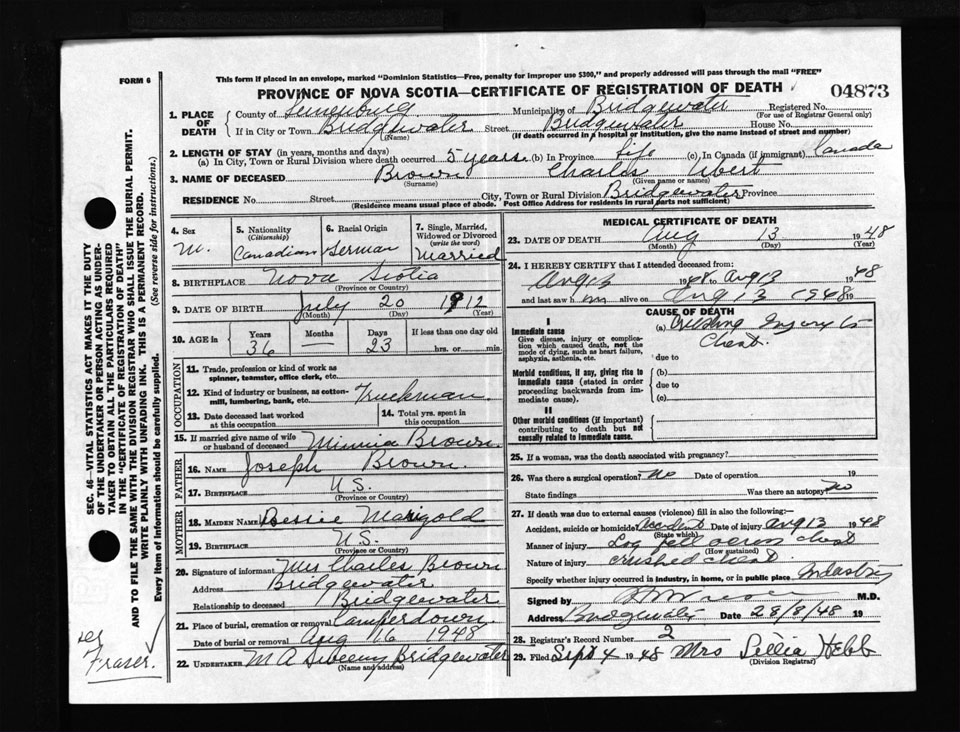 FORM 6
This form if placed in an envelope, marked "Dominion Statistics—Free, penalty for improper use $300," and properly addressed will pass through the mail "FREE"
PROVINCE OF NOVA SCOTIA—CERTIFICATE OF REGISTRATION OF DEATH
04873
1. PLACE OF DEATH County of Lunenburg Municipality of Bridgewater Registered No.
(For use of Registrar General only)
If in City or Town Bridgewater Street Bridgewater House No.
(Name) (If death occurred in a hospital or institution, give the name instead of street and number)
2. LENGTH OF STAY (in years, months and days)
(a) In City, Town or Rural Division where death occurred 5 years (b) In Province life (c), In Canada (if immigrant) Canada
3. NAME OF DECEASED Brown Charles
(Surname) (Given name or names)
RESIDENCE No. Street City, Town or Rural Division Bridgewater Province
(Residence means usual place of abode. Post Office Address for residents in rural parts not sufficient)
4. Sex
M.
5. Nationality
(Citizenship)
Canadian
6. Racial Origin
German
7. Single, Married, Widowed or Divorced
(write the word)
Married
8. BIRTHPLACE Nova Scotia
(Province or Country)
9. DATE OF BIRTH July 20 1912
(Month) (Day) (Year)
10. AGE in Years Months Days If less than one day old
36 — 23 hrs. or min.
OCCUPATION
11. Trade, profession or kind of work as
spinner, teamster, office clerk, etc.
12. Kind of industry or business, as cotton-
mill, lumbering, bank, etc. Truckman
13. Date deceased last worked
at this occupation
14. Total yrs. spent in
this occupation
15. If married give name of wife
or husband of deceased Minnia Brown
FATHER
16. NAME Joseph Brown.
17. BIRTHPLACE U.S.
(Province or Country)
MOTHER
18. MAIDEN NAME Bessie Marigold
19. BIRTHPLACE U.S.
(Province or Country)
20. Signature of informant Mrs Charles Brown
Address Bridgewater
Relationship to deceased Bridgewater
21. Place of burial, cremation or removal Camperdown
Date of burial or removal Aug 16 1948
22. UNDERTAKER M A Sweeny Bridgewater
(Name and address)
MEDICAL CERTIFICATE OF DEATH
23. DATE OF DEATH Aug 13 1948
(Month) (Day) (Year)
24. I HEREBY CERTIFY that I attended deceased from:
Aug 13 1948 to Aug 13 1948
and last saw him alive on Aug 13 1948 19
CAUSE OF DEATH
I
Immediate cause
Give disease, injury or complication which caused death, not the mode of dying, such as heart failure, asphyxia, asthenia, etc.
(a) Injury to
Chest.
due to
Morbid conditions, if any, giving rise to immediate cause (stated in order proceeding backwards from immediate cause).
(b)
due to
(c)
II
Other morbid conditions (if important) contributing to death but not causally related to immediate cause.
25. If a woman, was the death associated with pregnancy?
26. Was there a surgical operation? No Date of operation 19
State findings Was there an autopsy? No
27. If death was due to external causes (violence) fill in also the following:—
Accident, suicide or homicide? Accident Date of injury Aug 13 1948
(State which)
Manner of injury Log fell across chest
(How sustained)
Nature of injury crushed chest
Specify whether injury occurred in industry, in home, or in public place Industry
Signed by M.D.
Address Bridgewater Date 28/8/48 19
28. Registrar's Record Number 2
29. Filed Sept 4 1948 Mrs Lillia Hebb
(Division Registrar)
SEC. 46—VITAL STATISTICS ACT MAKES IT THE DUTY
OF THE UNDERTAKER OR PERSON ACTING AS UNDER-
TAKER TO OBTAIN ALL THE PARTICULARS REQUIRED
IN THE "CERTIFICATE OF REGISTRATION OF DEATH"
AND TO FILE THE SAME WITH THE DIVISION REGISTRAR WHO SHALL ISSUE THE BURIAL PERMIT.
WRITE PLAINLY WITH UNFADING INK. THIS IS A PERMANENT RECORD.
Every item of information should be carefully supplied. (See reverse side for instructions.)
Fraser.